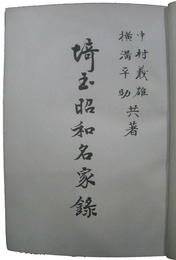 中村義雄
横溝平助 共著
埼玉昭和名家錄